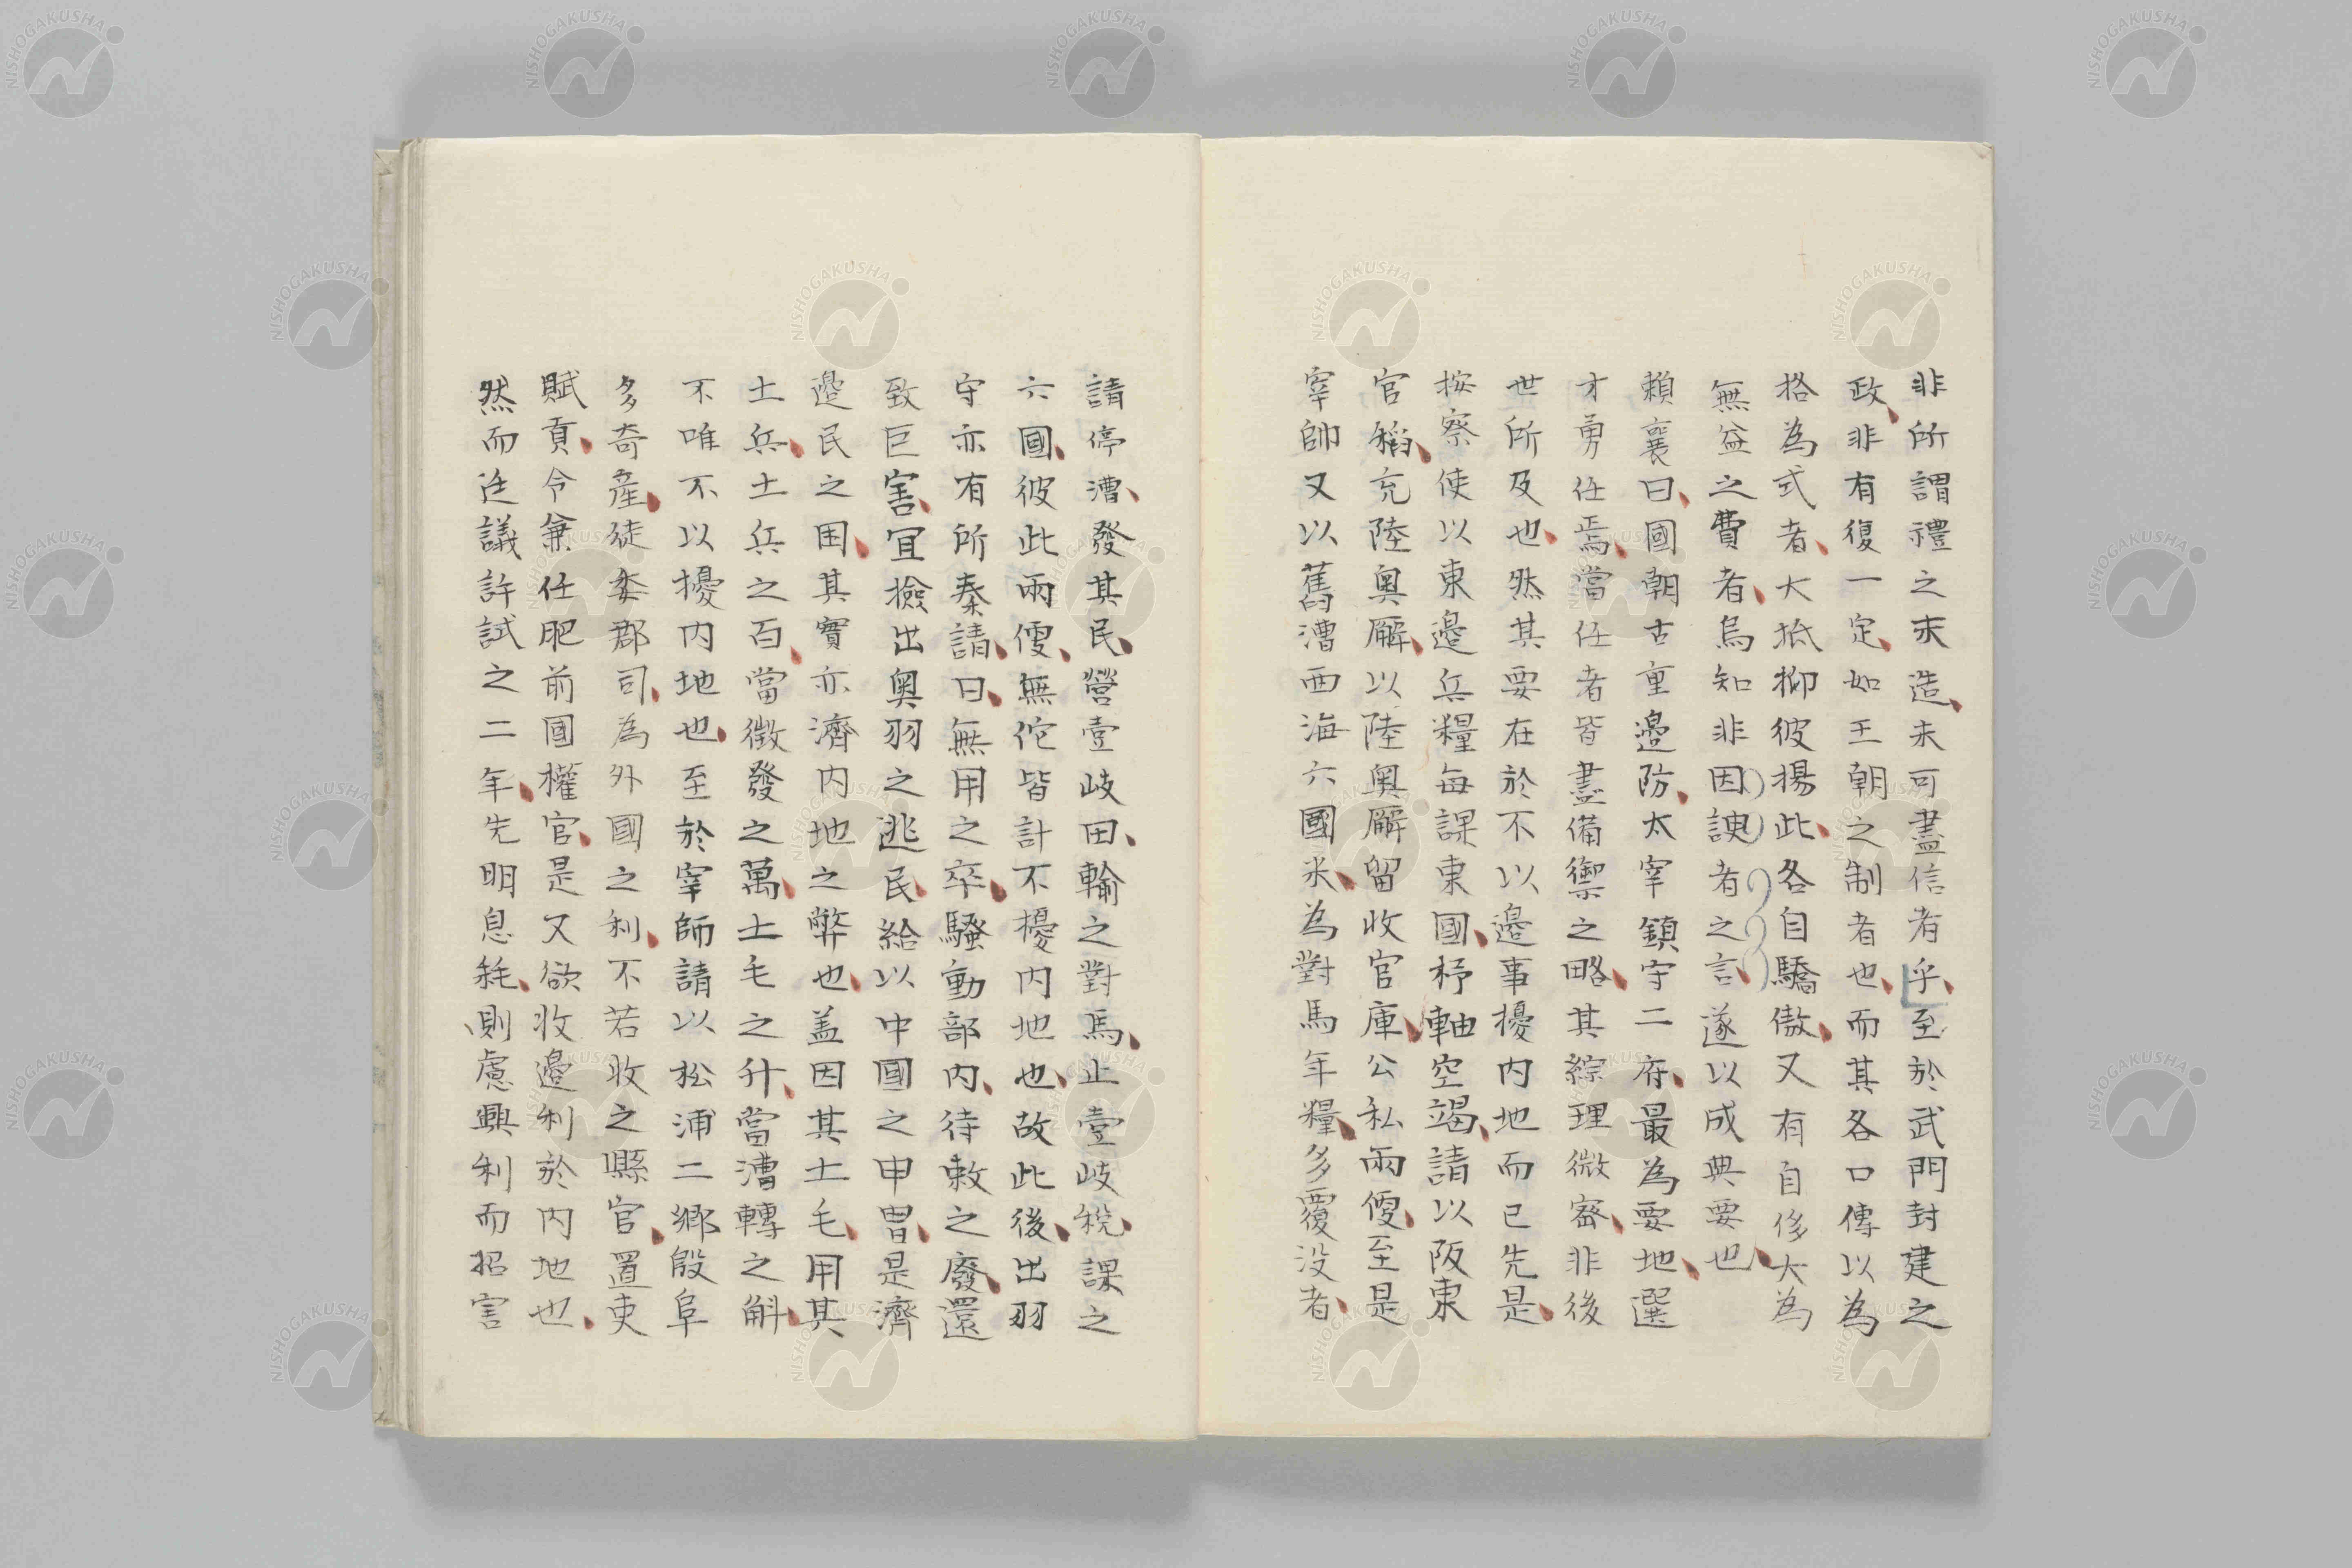 非所謂禮之末造、未可盡信者乎、至於武門封建之
政、非有復一定、如王朝之制者也、而其各口傳以為
格為式者、大抵抑彼揚此、各自驕傲、又有自侈大為
無益之費者、烏知非因諛者之言、遂以成典要也、
賴襄曰、國朝古重邊防、太宰鎮守二府、最為要地、選
才勇任焉、當任者皆盡備禦之略、其綜理微密、非後
世所及也、然其要在於不以邊事擾内地而已先是、
按察使以東邊兵糧每課東國、杼軸空竭、請以阪東
官稻、充陸奧廨、以陸奧廨留收官庫、公私兩便、至是
宰帥又以舊漕西海六國米、為對馬年糧、多覆没者、
請停漕、發其民、營壹岐田、輸之對馬、止壹岐稅、課之
六國、彼此兩便、無佗皆計不擾内地也、故此後、出羽
守亦有所奏請、曰、無用之卒、騷動部内、待敕之廢、還
致巨害、宜撿出奧羽之逃民、給以中國之甲冑、是濟
邊民之困、其實亦濟内地之弊也、盖因其土毛、用其
土兵、土兵之百、當徴發之萬、土毛之升、當漕轉之斛、
不唯不以擾内地也、至於宰師請以松浦二鄉殷阜
多奇產、徒委郡司、為外國之利、不若收之縣官、置吏
賦貢、令兼任肥前國權官、是又欲收邊利於内地也、
然而廷議許試之二年、先明息耗、則慮興利而招害
NISHOGAKUSHA